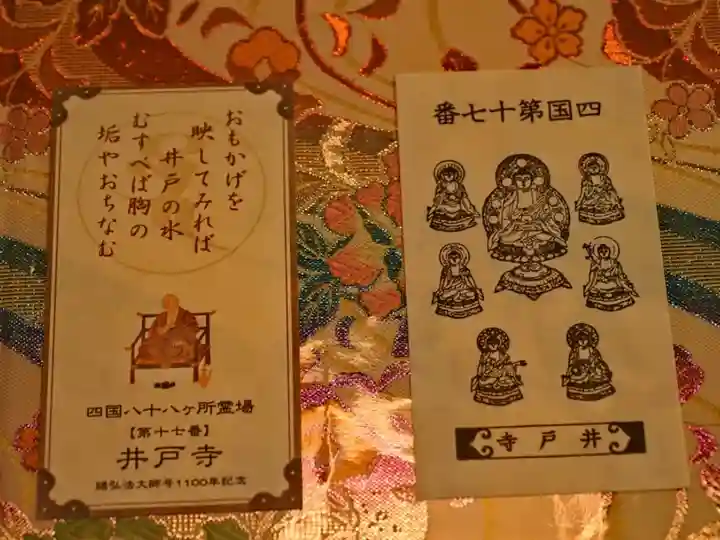 おもかげを
映してみれば
井戸の水
むすべば胸の
垢やおちなむ
四国八十八ヶ所霊場
【第十七番】
井戸寺
贈弘法大師号1100年記念
番七十第国四
寺戸井